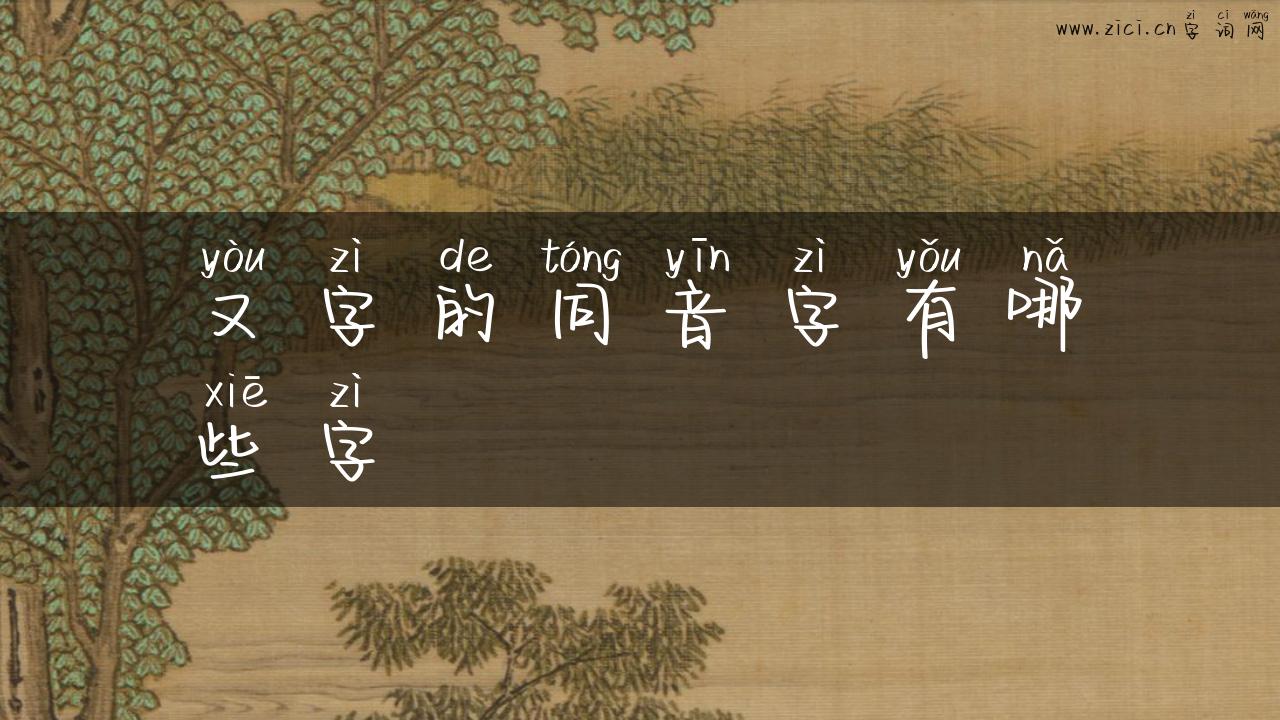 zì cí wǎng
www.zici.cn 字 词 网
yòu zì de tóng yīn zì yǒu nǎ
又 字 的 同 音 字 有 哪
xiē zì
些 字